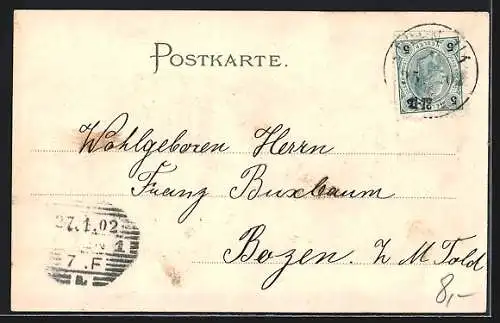 POSTKARTE.
5 5
Wohlgeboren Herrn
Franz Buxbaum
27.1.02
1
7.F
Bozen.
8,-